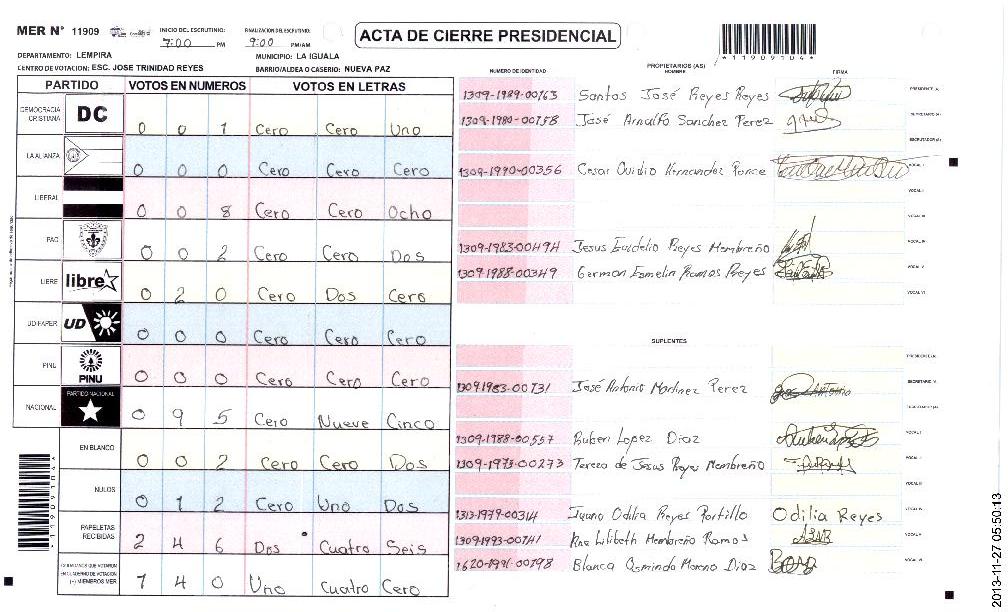 MER N° 11909 INICIO DEL ESCRUTINIO: 7:00 PM FINALIZACION DEL ESCRUTINIO: 9:00 PM/AM ACTA DE CIERRE PRESIDENCIAL
DEPARTAMENTO: LEMPIRA MUNICIPIO: LA IGUALA
CENTRO DE VOTACION: ESC. JOSE TRINIDAD REYES BARRIO/ALDEA O CASERIO: NUEVA PAZ
*11909104*
PARTIDO VOTOS EN NUMEROS VOTOS EN LETRAS
DEMOCRACIA CRISTIANA DC 0 0 1 Cero Cero Uno
LA ALIANZA 0 0 0 Cero Cero Cero
LIBERAL 0 0 8 Cero Cero Ocho
PAC 0 0 2 Cero Cero Dos
LIBRE libre 0 2 0 Cero Dos Cero
UD-FAPER UD 0 0 0 Cero Cero Cero
PINU PINU 0 0 0 Cero Cero Cero
NACIONAL PARTIDO NACIONAL 0 9 5 Cero Nueve Cinco
EN BLANCO 0 0 2 Cero Cero Dos
NULOS 0 1 2 Cero Uno Dos
PAPELETAS RECIBIDAS 2 4 6 Dos Cuatro Seis
CIUDADANOS QUE VOTARON EN CUADERNO DE VOTACION (+) MIEMBROS MER 1 4 0 Uno Cuatro Cero
*11909104*
NUMERO DE IDENTIDAD PROPIETARIOS (AS) NOMBRE FIRMA
1309-1989-00163 Santos José Reyes Reyes PRESIDENTE (A)
1309-1980-00158 José Arnulfo Sanchez Perez SECRETARIO (A)
ESCRUTADOR (A)
1309-1990-00356 Cesar Ovidio Hernandez Ponce VOCAL I
VOCAL II
VOCAL III
1309-1983-00494 Jesus Reyes Membreño VOCAL IV
1309-1988-00349 German Ramos Reyes VOCAL V
VOCAL VI
SUPLENTES
PRESIDENTE (A)
1309-1983-00731 José Antonio Martinez Perez SECRETARIO (A)
ESCRUTADOR (A)
1309-1988-00557 Ruben Lopez Diaz VOCAL I
1309-1973-00273 Tereza de Jesus Reyes Membreño VOCAL II
VOCAL III
1313-1979-00314 Juana Odilia Reyes Portillo Odilia Reyes VOCAL IV
1309-1993-00741 Ana Lilibeth Membreño Ramos VOCAL V
1620-1991-00798 Blanca Osminda Moreno Diaz VOCAL VI
2013-11-27 05:50:13